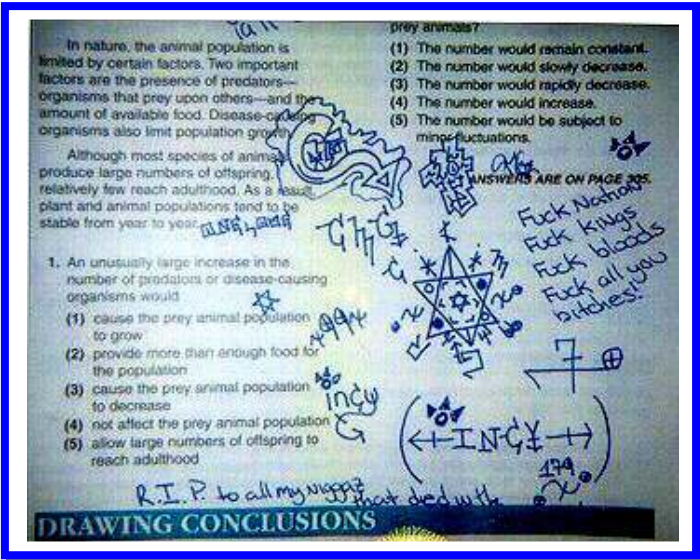 In nature, the animal population is
limited by certain factors. Two important
factors are the presence of predators—
organisms that prey upon others—and the
amount of available food. Disease-causing
organisms also limit population growth.
Although most species of animals
produce large numbers of offspring,
relatively few reach adulthood. As a result,
plant and animal populations tend to be
stable from year to year.
1. An unusually large increase in the
number of predators or disease-causing
organisms would
(1) cause the prey animal population
to grow
(2) provide more than enough food for
the population
(3) cause the prey animal population
to decrease
(4) not affect the prey animal population
(5) allow large numbers of offspring to
reach adulthood
prey animals?
(1) The number would remain constant.
(2) The number would slowly decrease.
(3) The number would rapidly decrease.
(4) The number would increase.
(5) The number would be subject to
minor fluctuations.
ANSWERS ARE ON PAGE 305.
Fuck Nation
Fuck kings
Fuck bloods
Fuck all you
bitches!
7
incy
INC¥
174
R.I.P. to all my niggaz that died with
DRAWING CONCLUSIONS